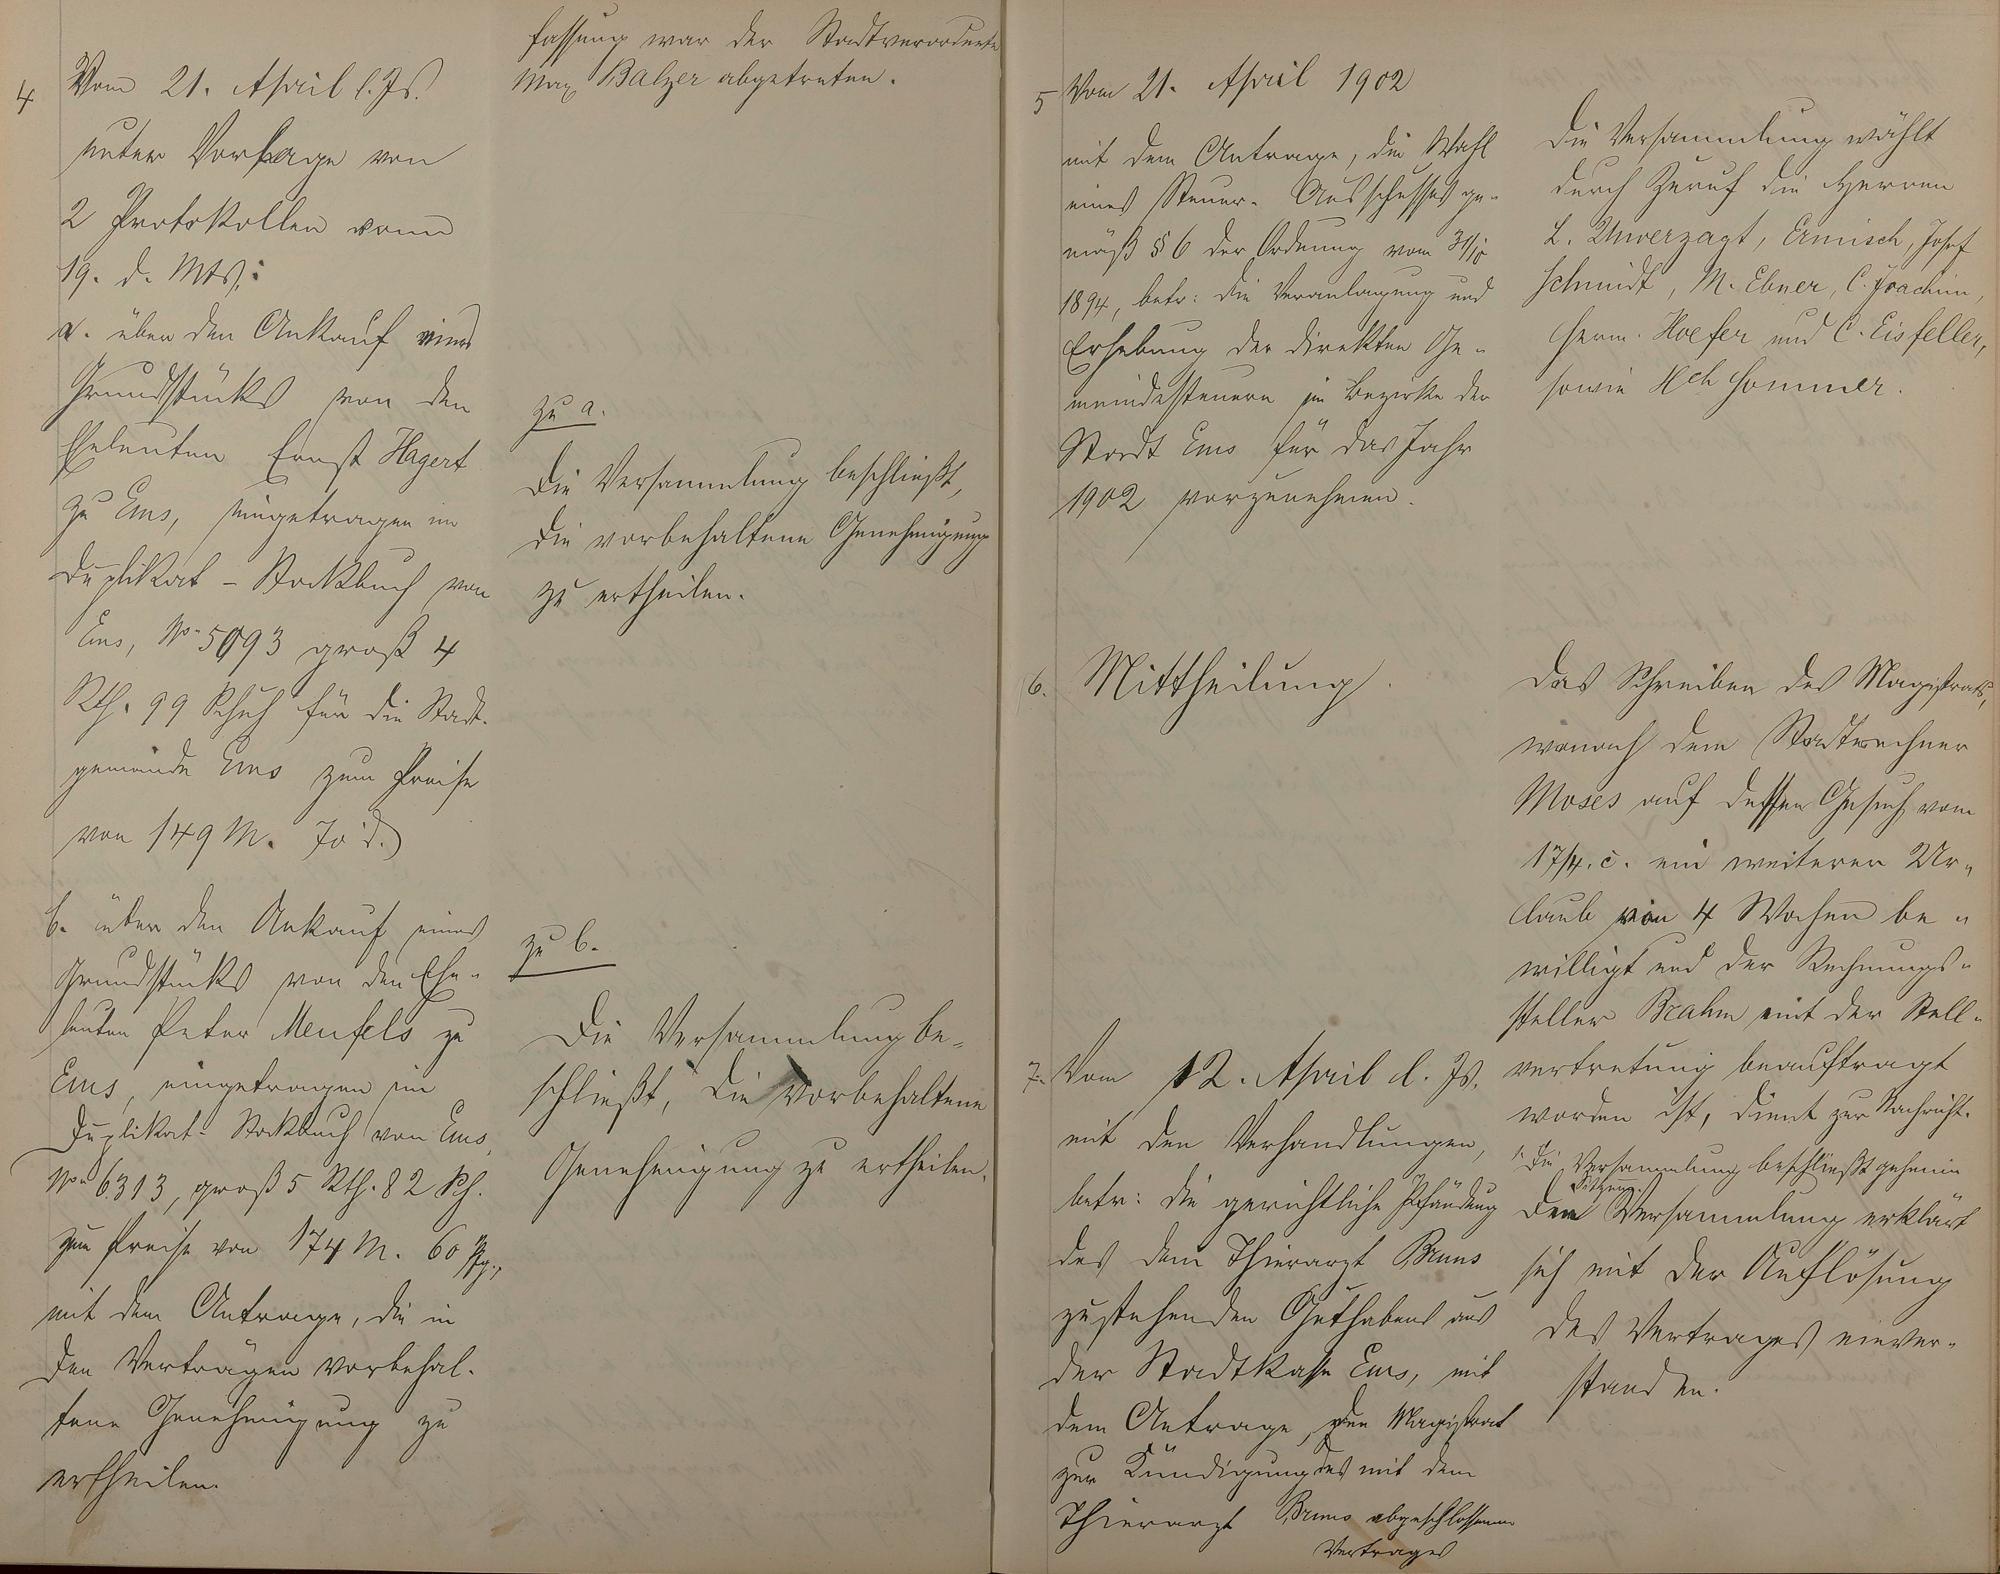 4
Vom 21. April l. Js.
unter Vorlage von
2 Protokollen vom
19. d. Mts.:
a. über den Ankauf eines
Grundstücks von den
Eheleuten Ernst Hagert
zu Ems, eingetragen im
Duplikat-Stockbuch von
Ems, No. 5093 groß 4
Rth. 99 Schuh für die Stadt-
gemeinde Ems zum Preise
von 149 M. 70 d.)
b. über den Ankauf eines
Grundstücks von den Ehe-
leuten Peter Meufels zu
Ems, eingetragen im
Duplikat-Stockbuch von Ems,
No. 6313, groß 5 Rth. 82 Sch.
zum Preise von 174 M. 60 Pfg.,
mit dem Antrage, die in
den Verträgen vorbehal-
tene Genehmigung zu
ertheilen.
fassung war der Stadtverordnete
Max Balzer abgetreten.
zu a.
Die Versammlung beschließt,
die vorbehaltene Genehmigung
zu ertheilen.
zu b.
Die Versammlung be-
schließt, die vorbehaltene
Genehmigung zu ertheilen.
5
Vom 21. April 1902
mit dem Antrage, die Wahl
eines Steuer-Ausschusses ge-
mäß § 6 der Ordnung vom 31/10
1894, betr: die Veranlagung und
Erhebung der direkten Ge-
meindesteuern im Bezirke der
Stadt Ems für das Jahr
1902 vorzunehmen.
Die Versammlung wählt
durch Zuruf die Herren
L. Unverzagt, Ermisch, Josef
Schmidt, M. Ebner, C. Joachim,
Herm. Hoefer und C. Eisfeller,
sowie Hch Sommer.
6. Mittheilung.
Das Schreiben des Magistrats,
wonach dem Stadtrechner
Moses auf dessen Gesuch vom
17/4. c. ein weiterer Ur-
laub von 4 Wochen be-
willigt und der Rechnungs-
steller Brahm mit der Stell-
vertretung beauftragt
worden ist, dient zur Nachricht.
7. Vom 12. April d. Js.
mit den Verhandlungen,
betr: die gerichtliche Pfändung
des dem Thierarzt Bruns
zustehenden Guthabens aus
der Stadtkasse Ems, mit
dem Antrage, den Magistrat
zur Kündigung des mit dem
Thierarzt Bruns abgeschlossenen
Vertrages
Die Versammlung beschließt geheime
Sitzung.
Die Versammlung erklärt
sich mit der Auflösung
des Vertrages einver-
standen.